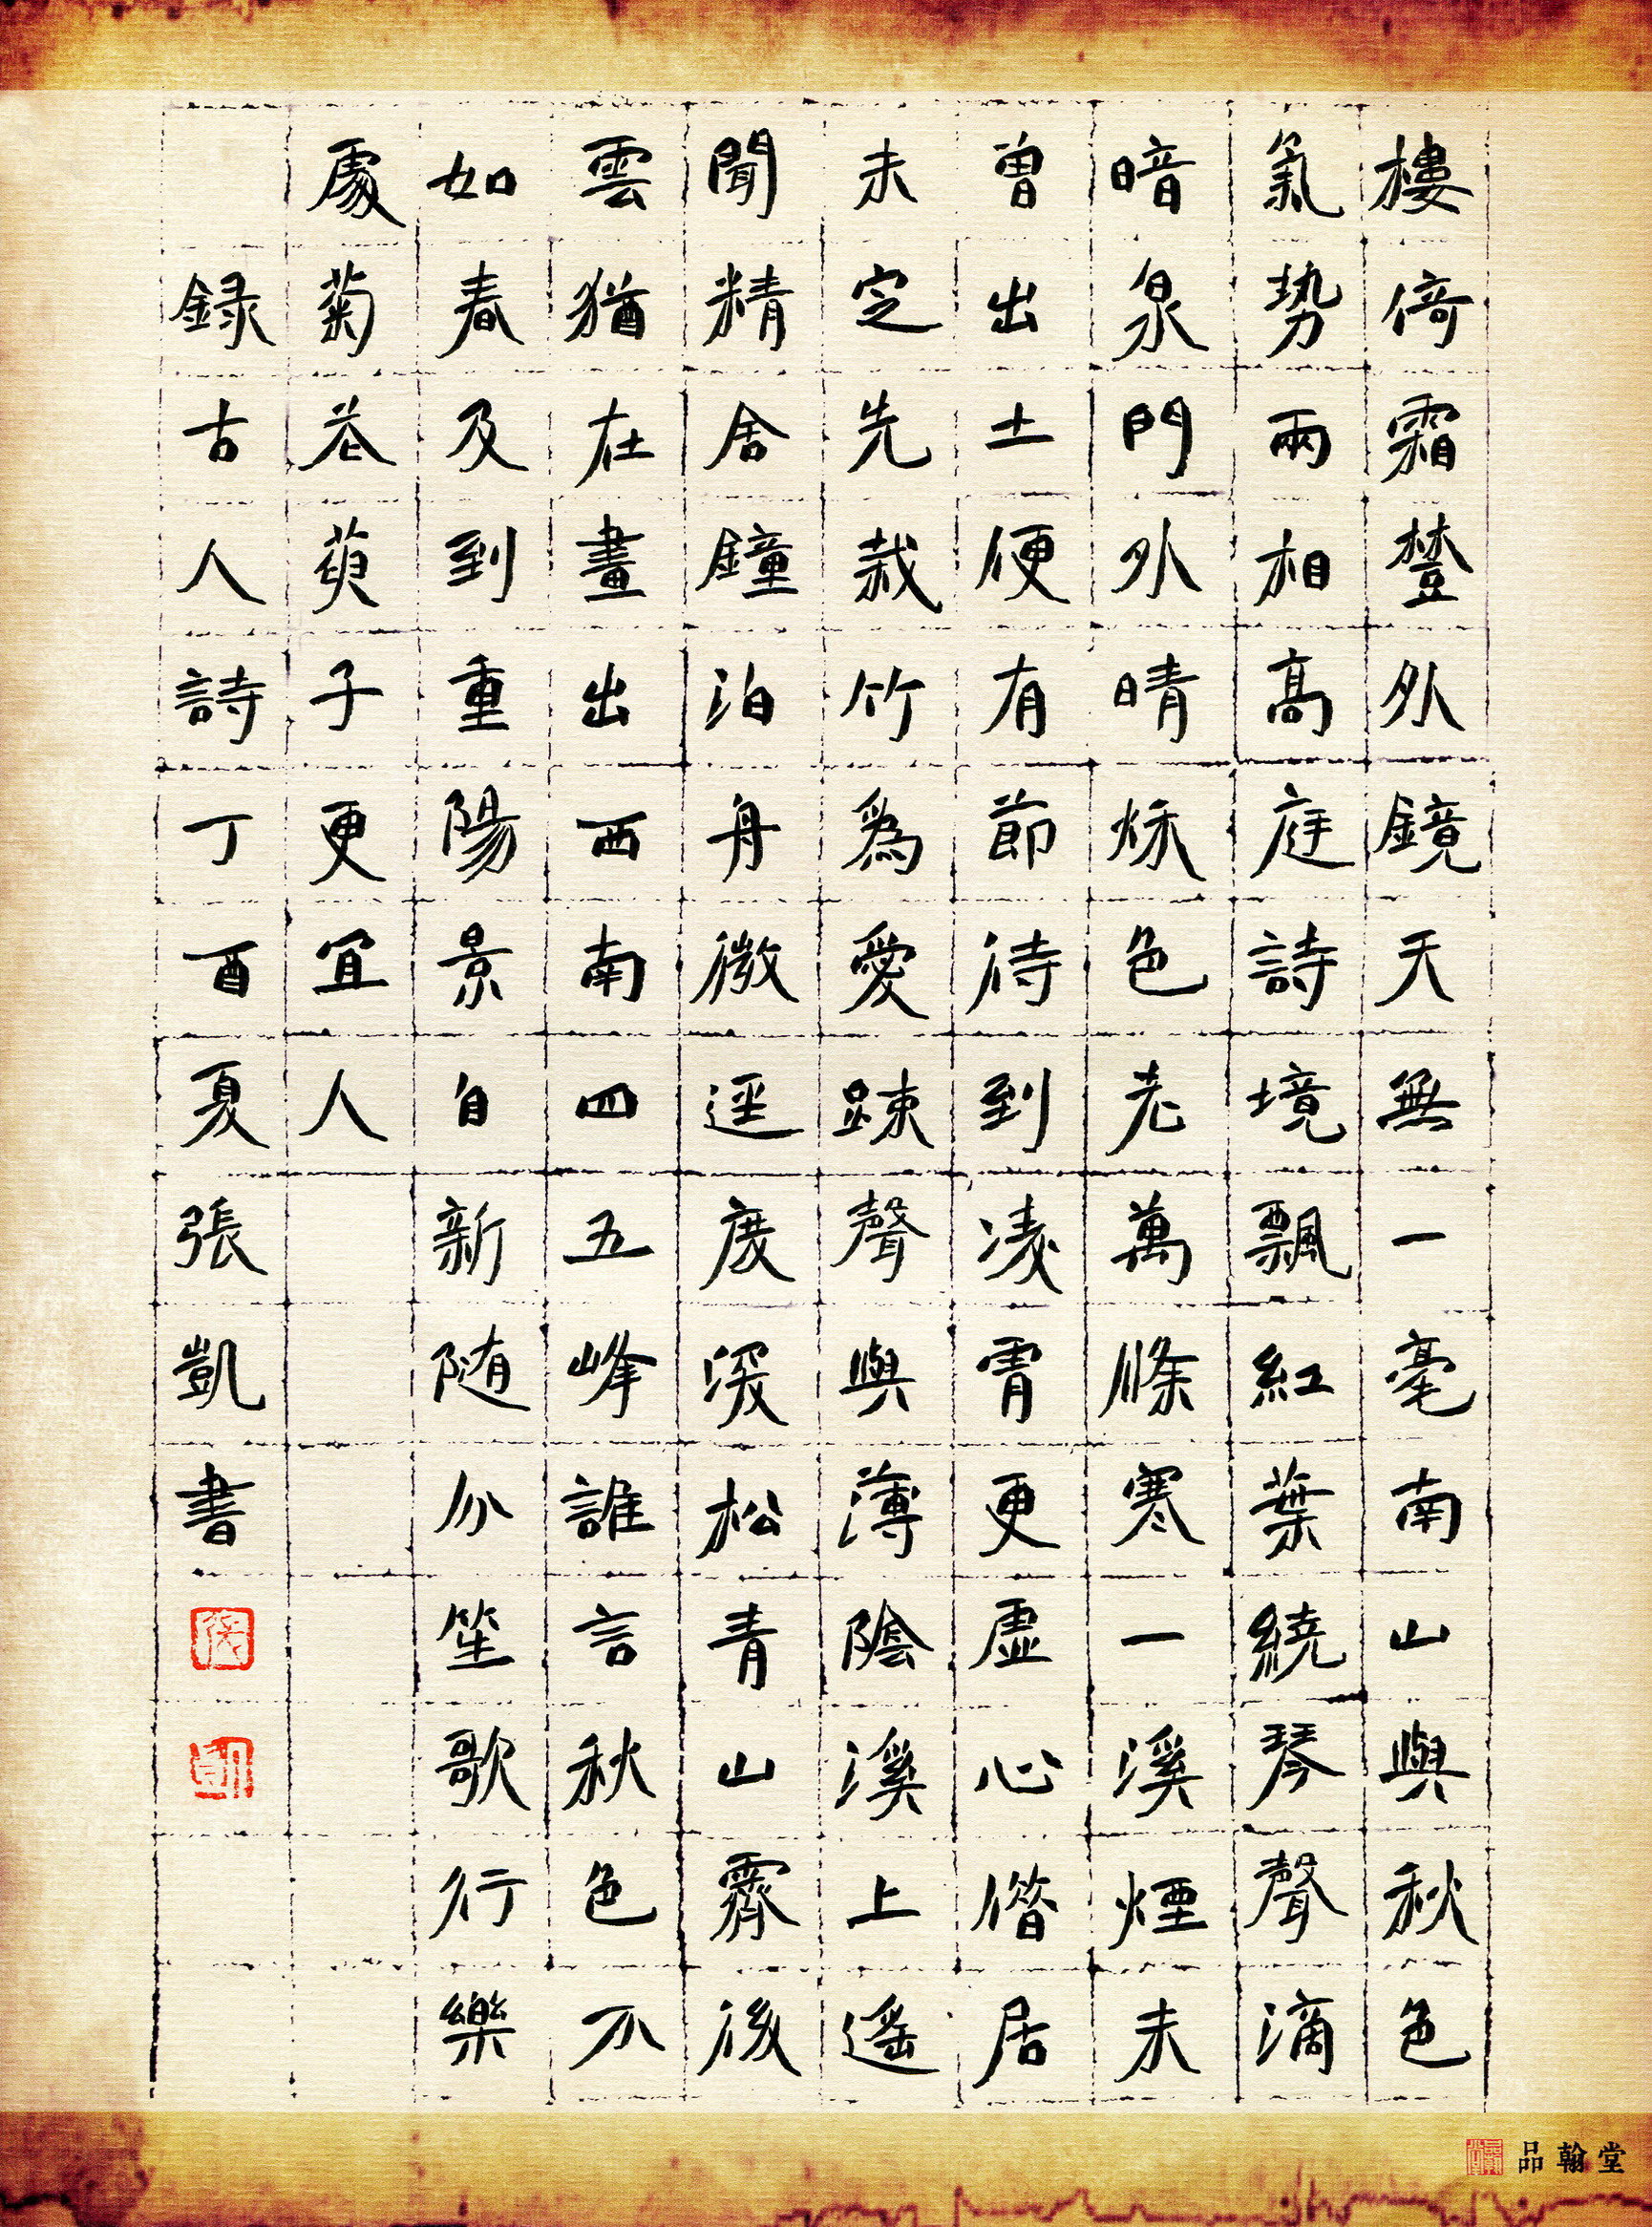 樓倚霜樹外鏡天無一毫南山與秋色
氣勢兩相高庭詩境飄紅葉繞琴聲滴
暗泉門外晴秌色老萬條寒一溪煙未
曾出土便有節待到凌霄更虛心偕居
未定先栽竹爲愛踈聲與薄陰溪上遙
聞精舍鐘泊舟微逕度深松青山霽後
雲猶在畫出西南四五峰誰言秋色不
如春及到重陽景自新随分笙歌行樂
處菊花萸子更宜人
録古人詩丁酉夏張凱書
品翰堂